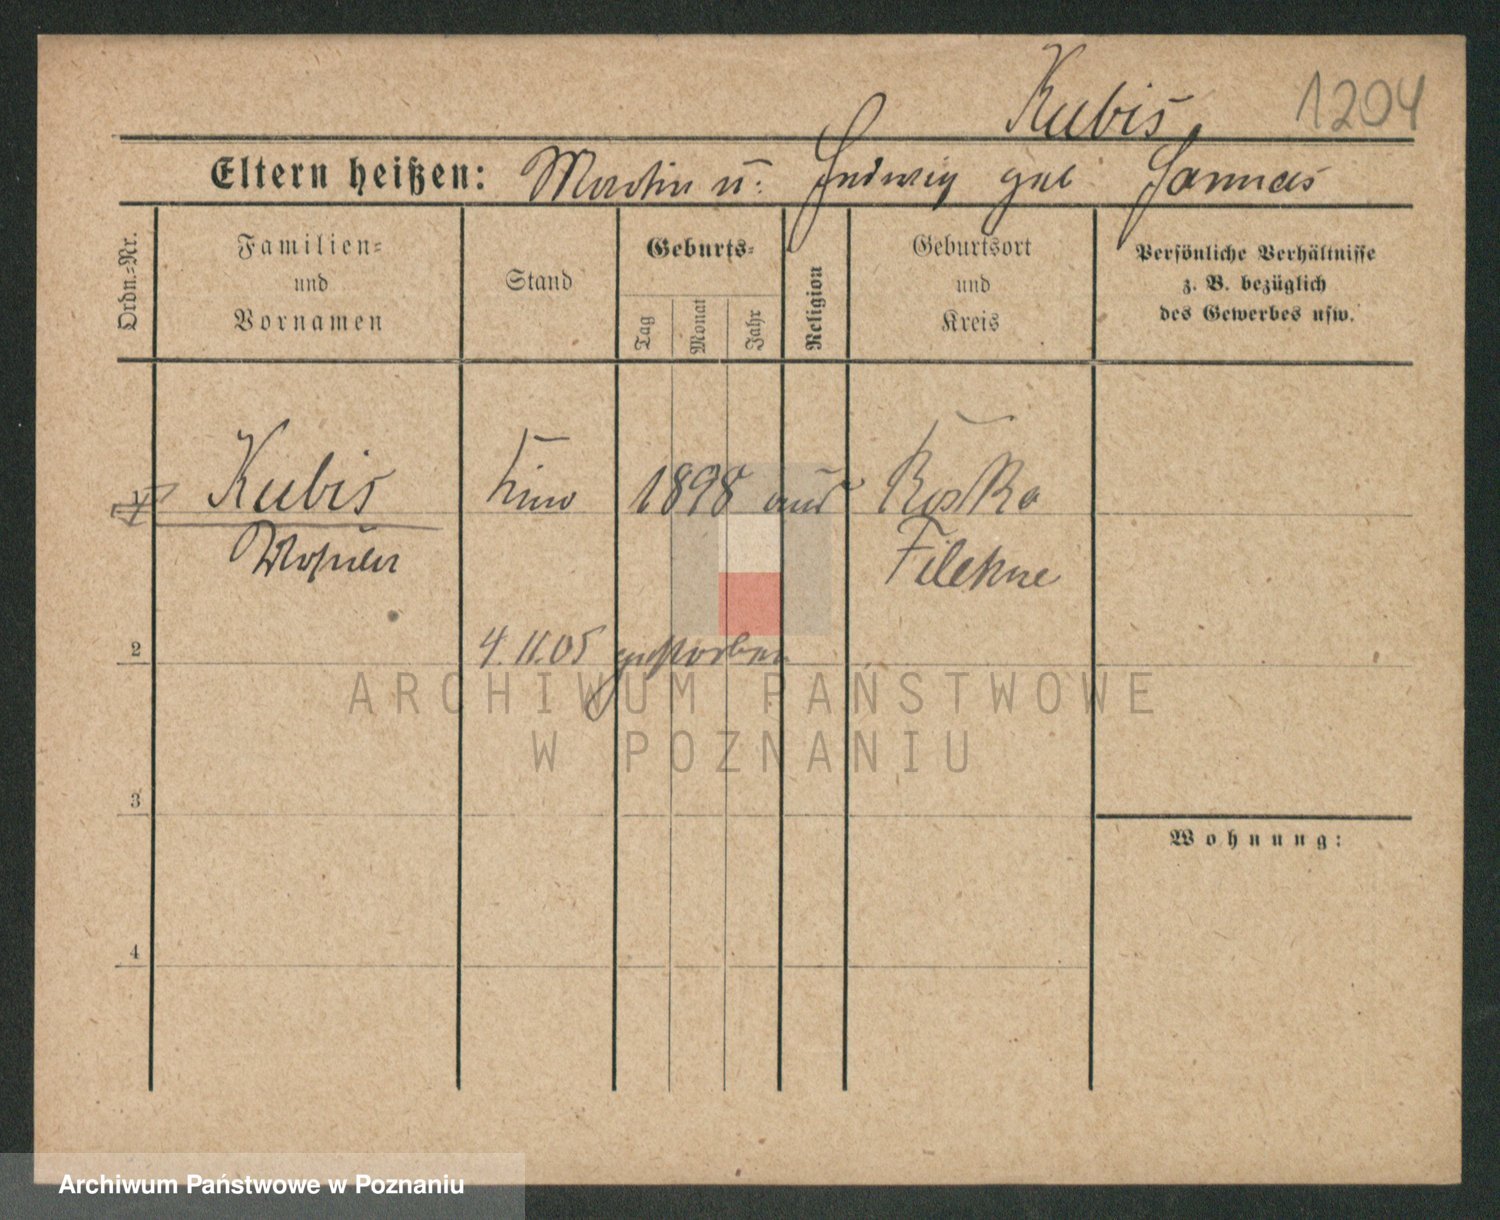 Kubis 1204
Eltern heißen: Martin u. Hedwig geb.
Ordn.=Nr.
Familien=
und
Vornamen
Stand
Geburts=
Tag
Monat
Jahr
Religion
Geburtsort
und
Kreis
Persönliche Verhältnisse
z. B. bezüglich
des Gewerbes usw.
Kubis Kind 1898 Rosko
Filehne
2
4.11.05 gestorben
ARCHIWUM PAŃSTWOWE
W POZNANIU
3
Wohnung:
4
Archiwum Państwowe w Poznaniu